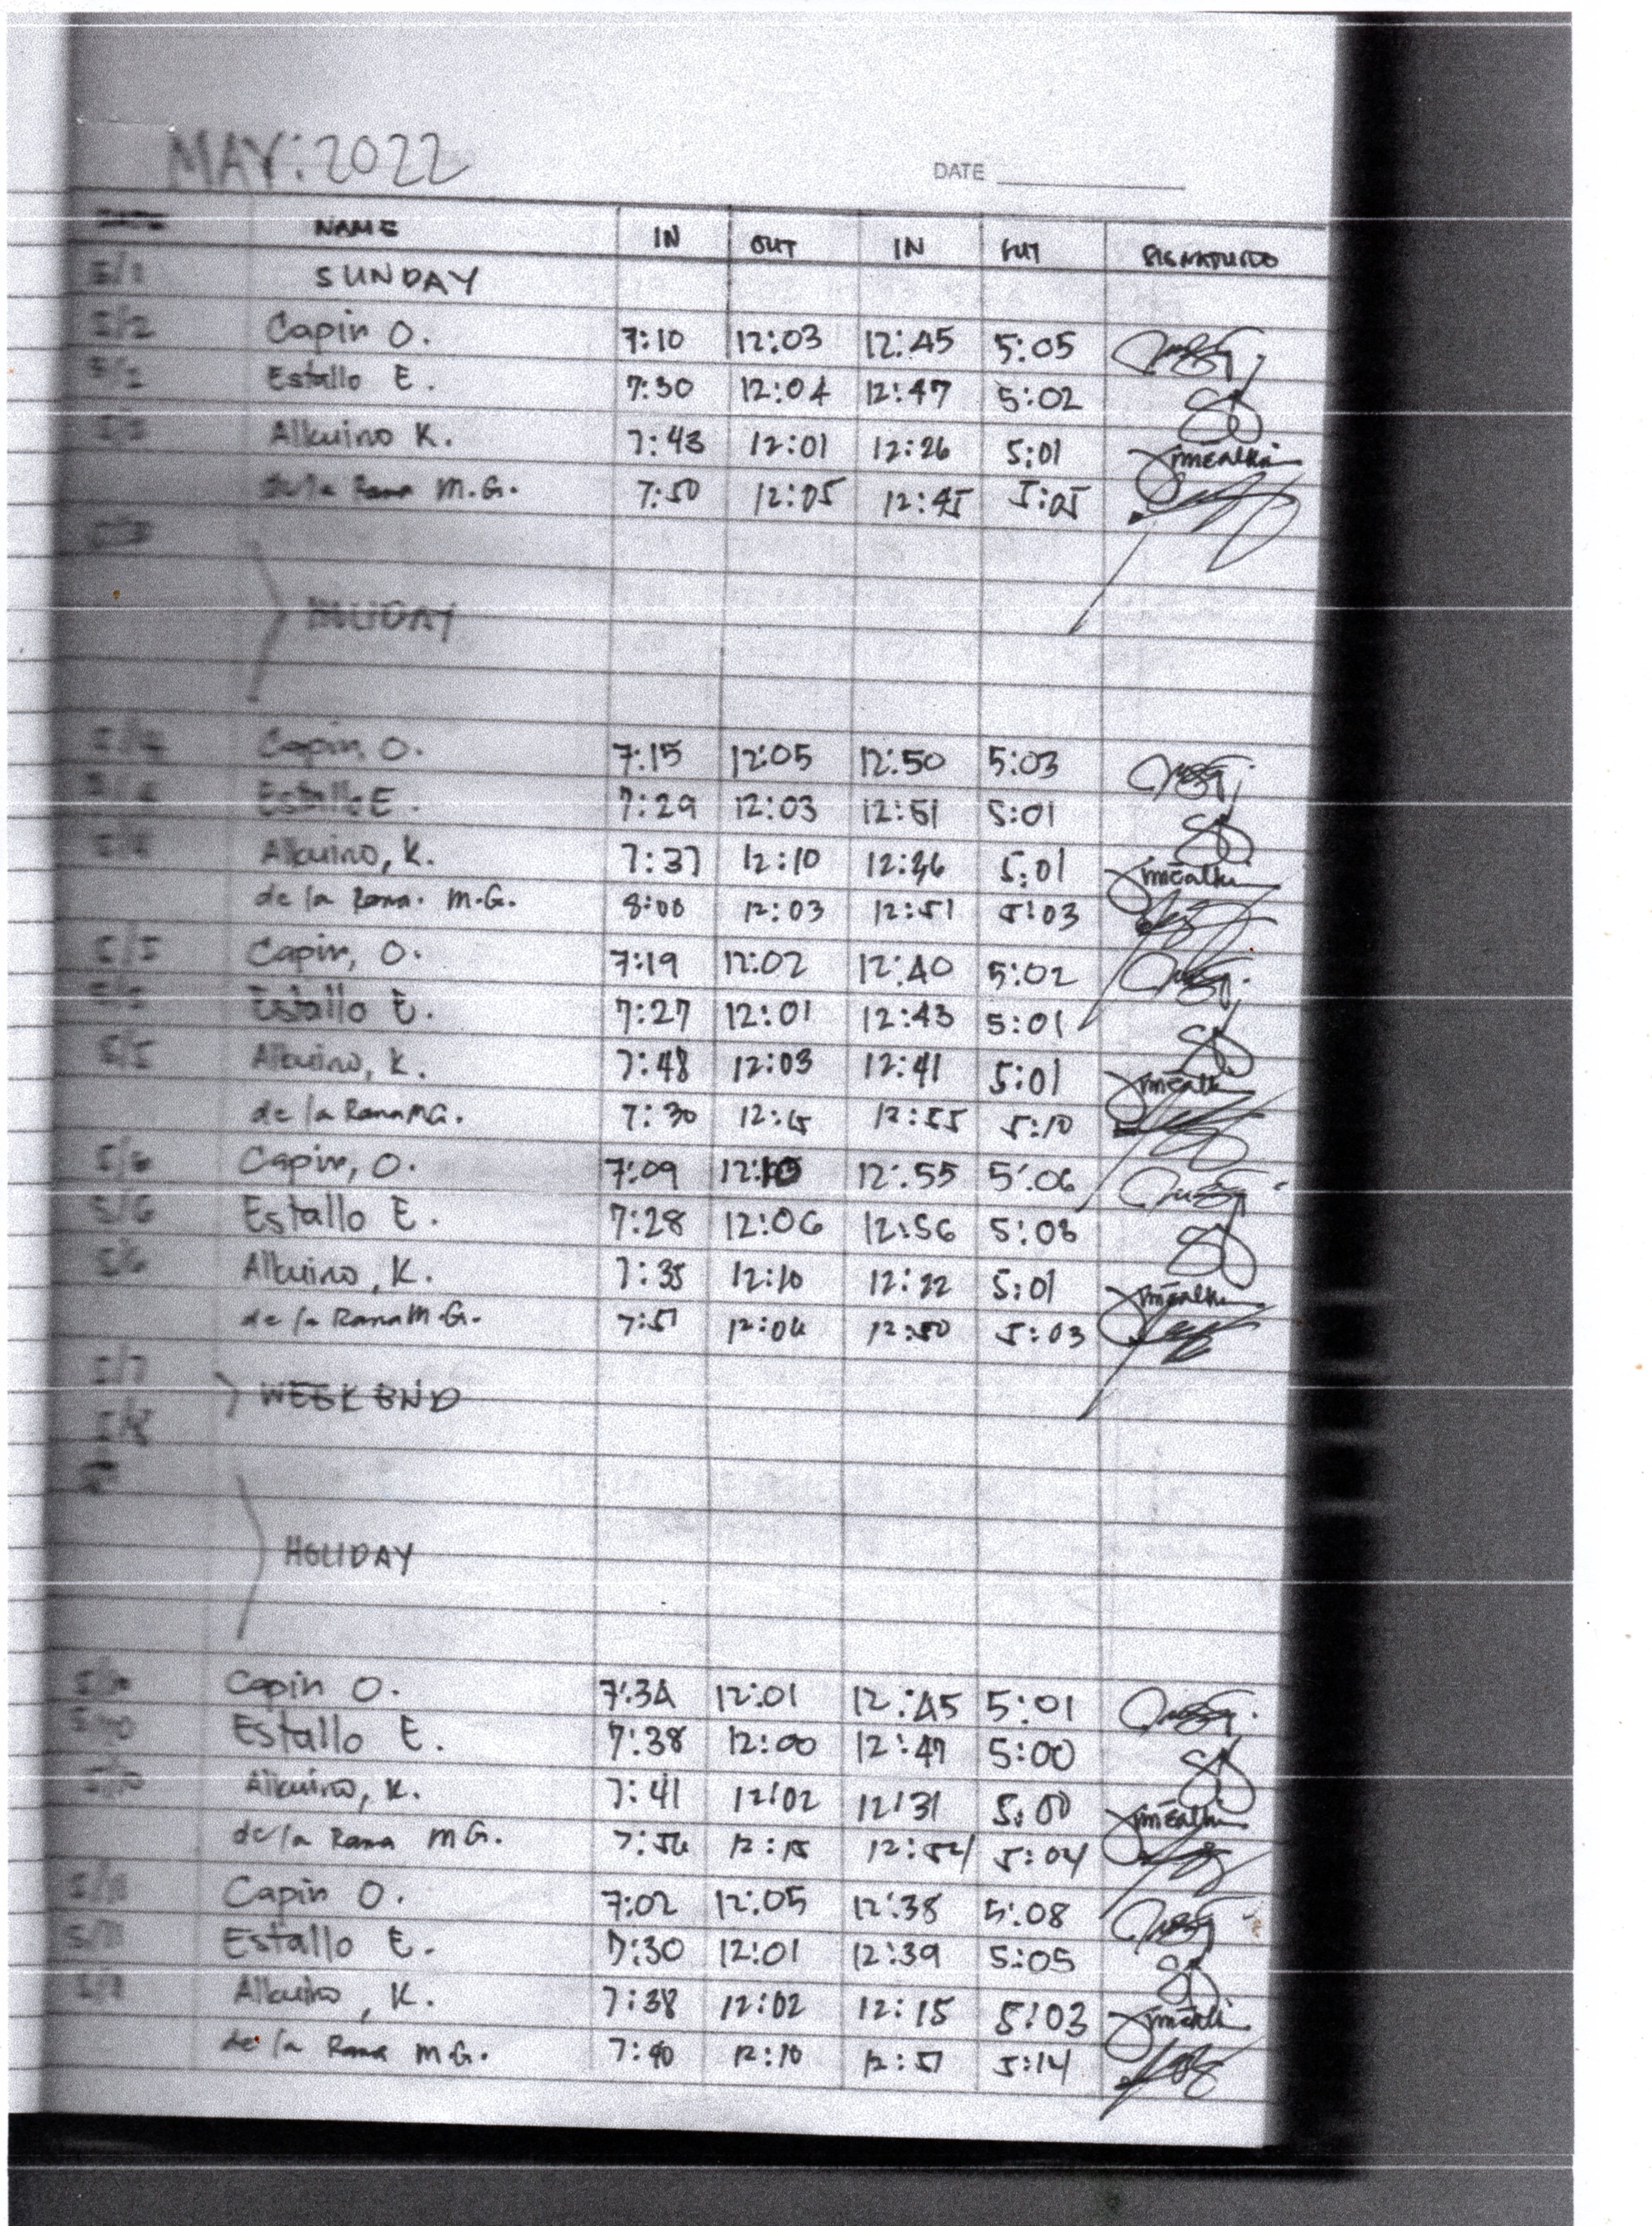 MAY: 2022
DATE
DATE NAME IN OUT IN OUT
5/1 SUNDAY
5/2 Capin O. 7:10 12:03 12:45 5:05
Estallo E. 7:30 12:04 12:47 5:02
Alkuino K. 7:43 12:01 12:26 5:01
de la Rama M.G. 7:50 12:05 12:45 5:05
HOLIDAY
5/4 Capin, O. 7:15 12:05 12:50 5:03
Estallo E. 7:29 12:03 12:51 5:01
Alkuino, K. 7:37 12:10 5:01
de la Rama. M.G. 8:00 12:03 12:51 5:03
5/5 Capin, O. 7:19 12:02 12:40 5:02
Estallo E. 7:27 12:01 12:43 5:01
5/5 Alkuino, K. 7:48 12:03 12:41 5:01
de la Rama MG. 7:30 12:55 5:10
5/6 Capin, O. 7:09 12:10 12:55 5:06
5/6 Estallo E. 7:28 12:06 12:56
5/6 Alkuino, K. 7:35 12:10 12:22 5:01
de la Rama M.G. 7:51 12:50 5:03
5/7
WEEKEND
5/8
HOLIDAY
Capin O. 7:34 12:01 12:45 5:01
5/10 Estallo E. 7:38 12:00 12:47 5:00
5/10 Alkuino, K. 7:41 12:02 12:31 5:00
de la Rama MG. 12:15 5:04
Capin O. 7:02 12:05 12:38 5:08
5/11 Estallo E. 7:30 12:01 12:39 5:05
Alkuino, K. 7:38 12:02 12:15 5:03
de la Rama M.G. 7:40 12:10 12:51 5:14